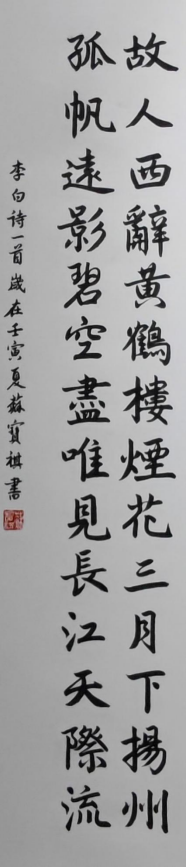 故人西辭黃鶴樓煙花三月下揚州
孤帆遠影碧空盡唯見長江天際流
李白詩一首歲在壬寅夏蘇寶祺書